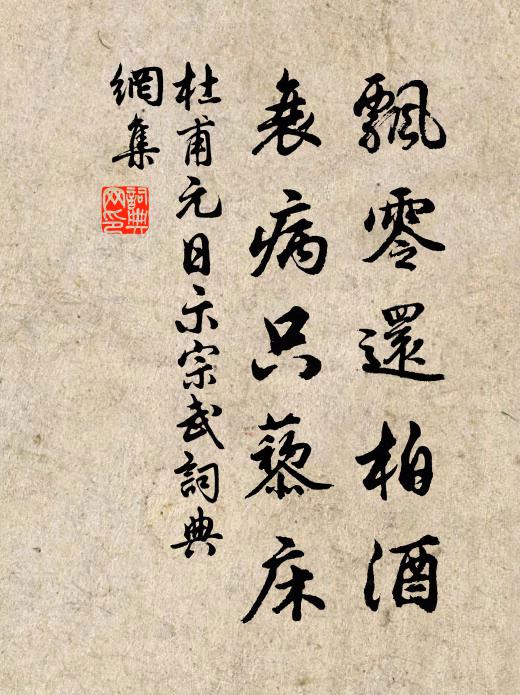 飄零還柏酒
衰病只藜床
杜甫元日示宗武詞典
網集
詞典
网印